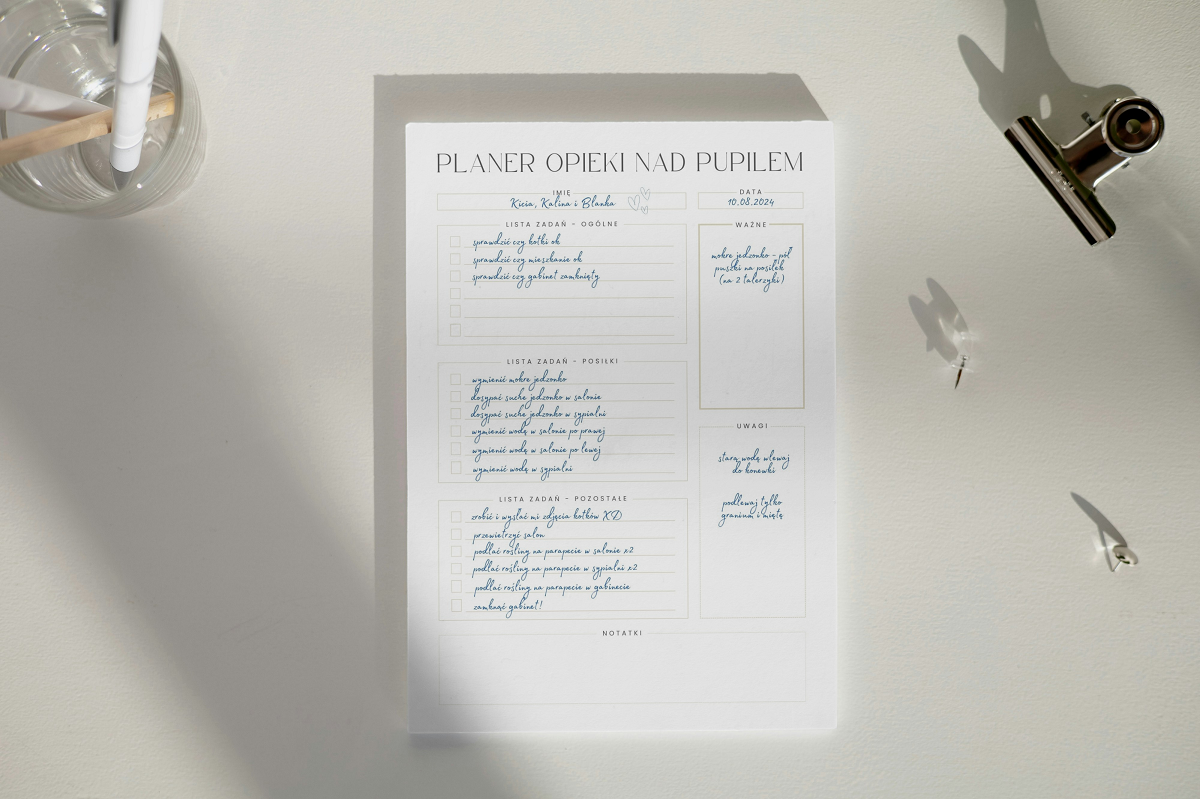 PLANER OPIEKI NAD PUPILEM
IMIĘ
Kicia, Kalina i Blanka
DATA
10.08.2024
LISTA ZADAŃ - OGÓLNE
sprawdzić czy kotki ok
sprawdzić czy mieszkanie ok
sprawdzić czy gabinet zamknięty
WAŻNE
mokre jedzonko - pół
puszki na posiłek
(na 2 talerzyki)
LISTA ZADAŃ - POSIŁKI
wymienić mokre jedzonko
dosypać suche jedzonko w salonie
dosypać suche jedzonko w sypialni
wymienić wodę w salonie po prawej
wymienić wodę w salonie po lewej
wymienić wodę w sypialni
UWAGI
starą wodę wlewaj
do konewki
podlewaj tylko
granium i miętę
LISTA ZADAŃ - POZOSTAŁE
zrobić i wysłać mi zdjęcia kotków XD
przewietrzyć salon
podlać rośliny na parapecie w salonie x2
podlać rośliny na parapecie w sypialni x2
podlać rośliny na parapecie w gabinecie
zamknąć gabinet!
NOTATKI